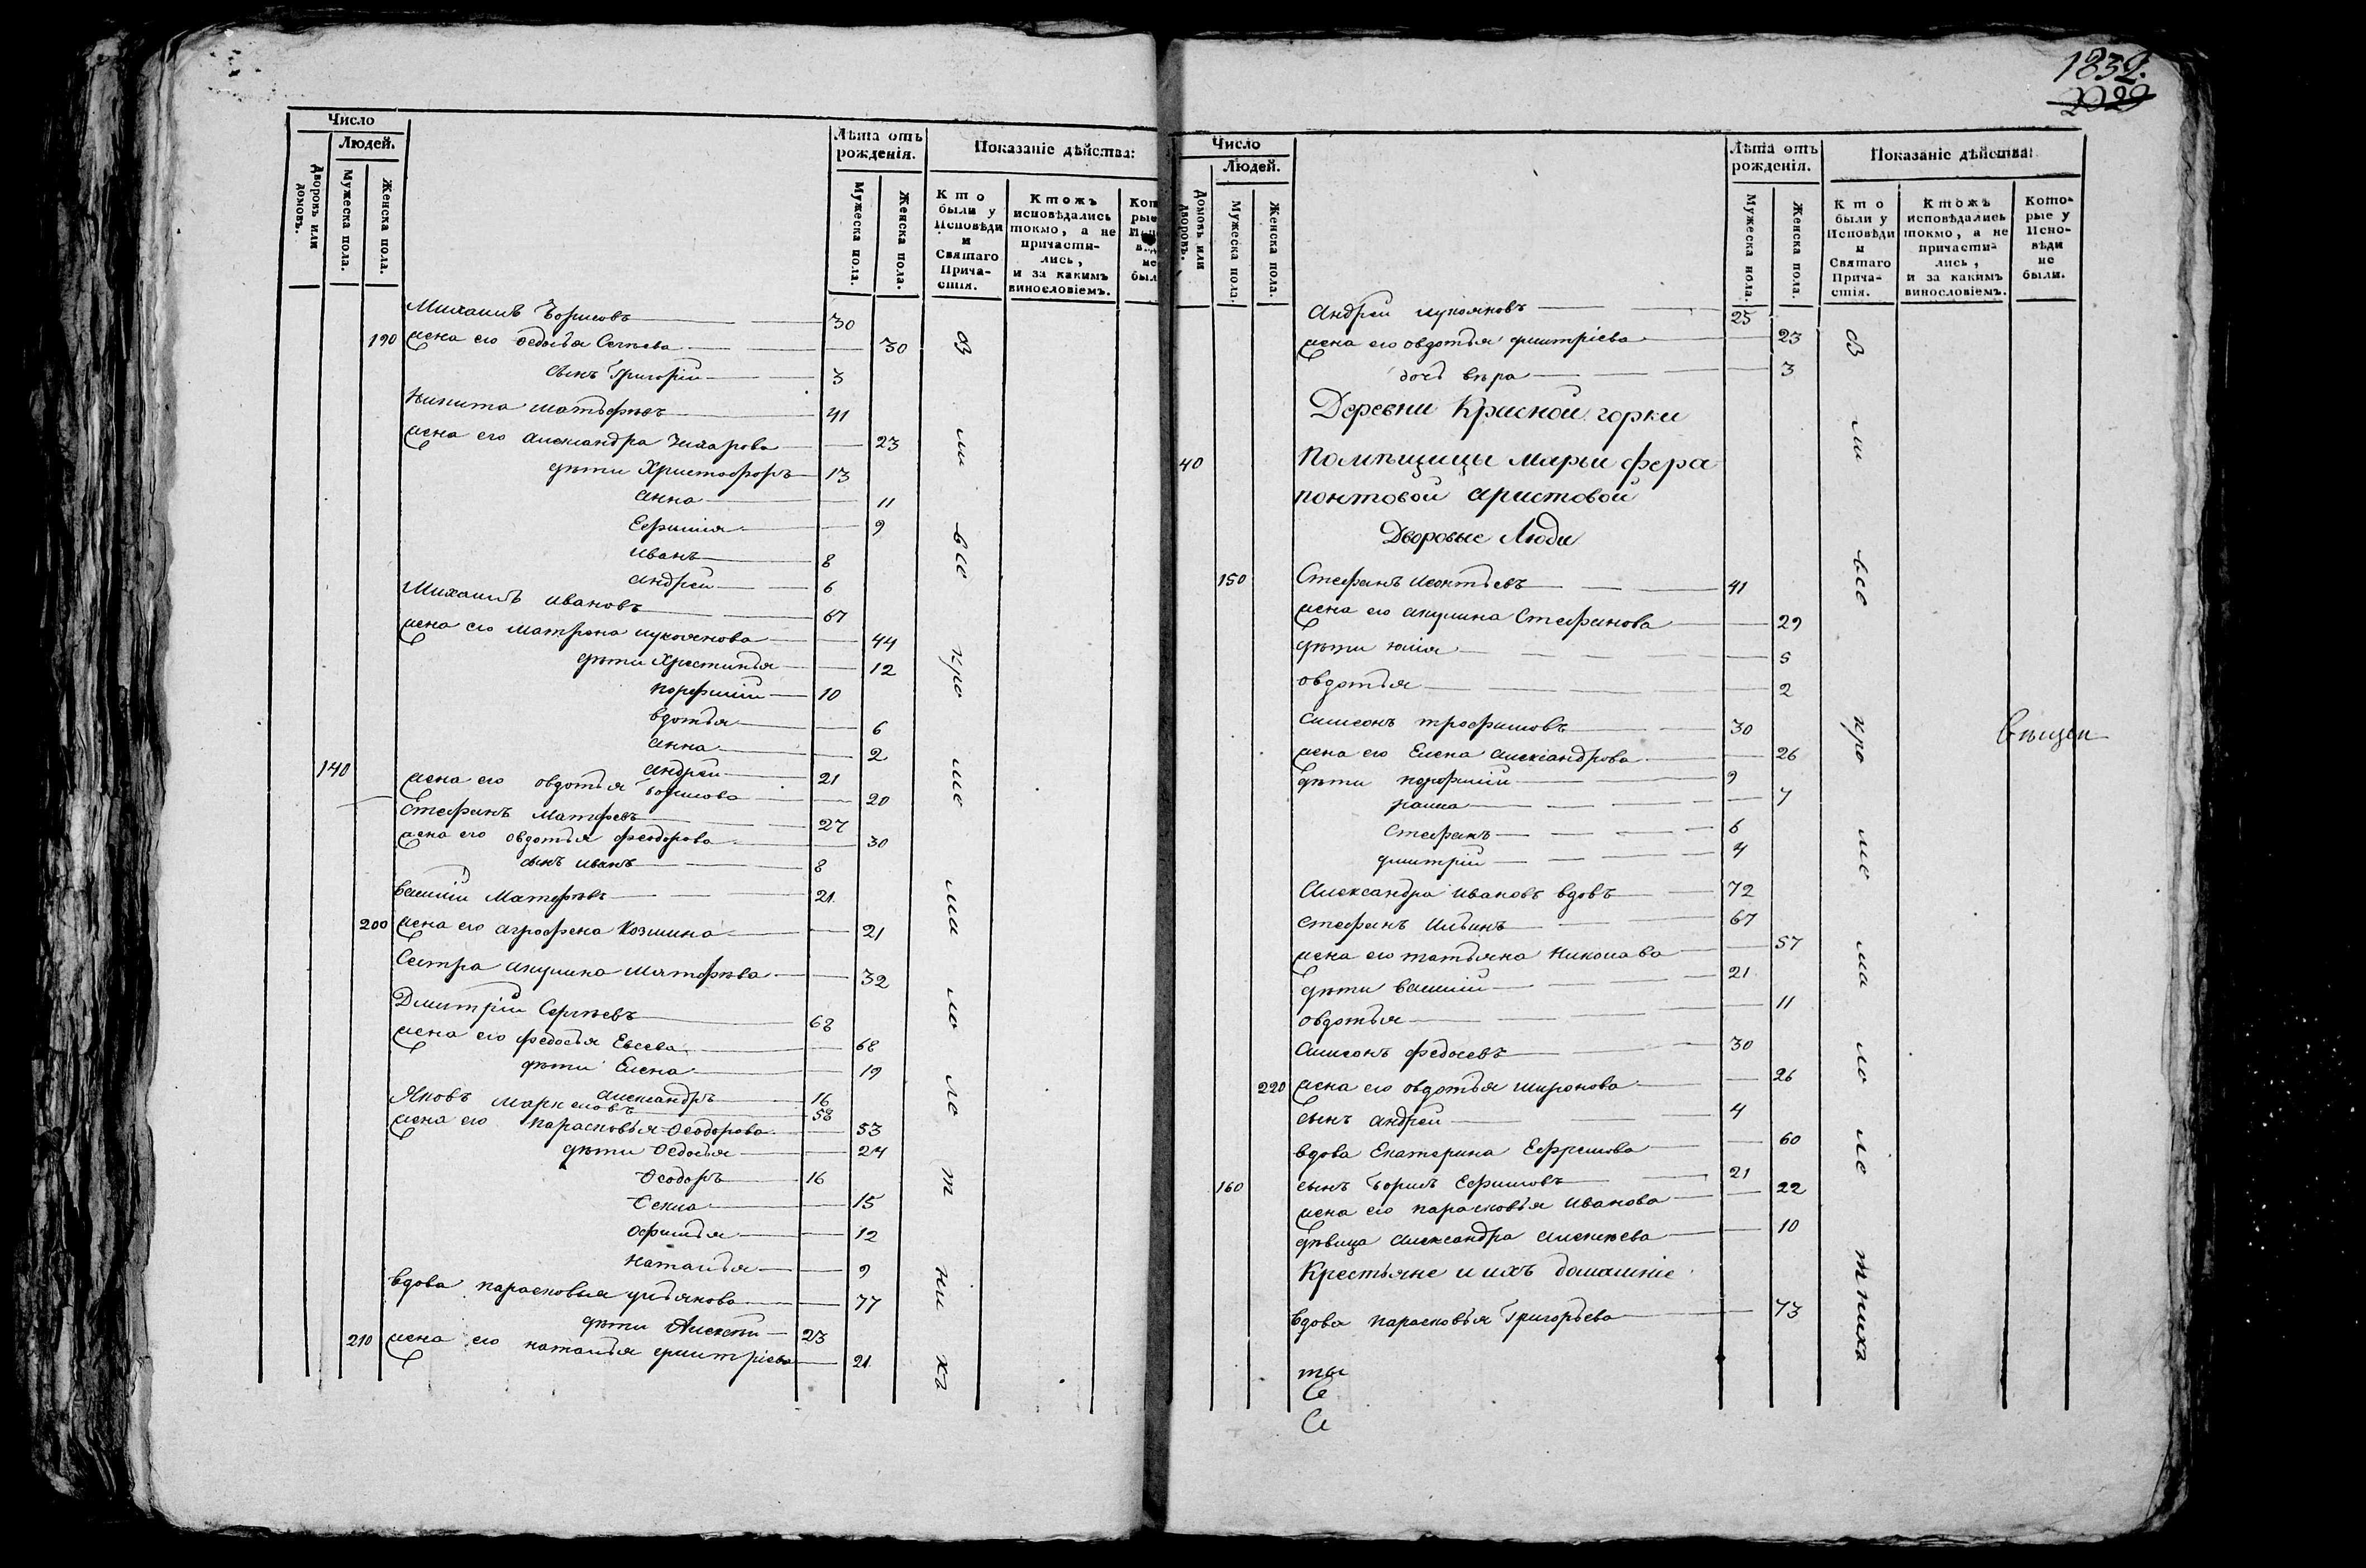 Число
Людей.
Дворовъ или домовъ.
Мужеска пола.
Женска пола.
Лѣта отъ рожденія.
Мужеска пола.
Женска пола.
Показаніе дѣйства:
Кто были у Исповѣди и Святаго Причастія.
Ктожъ исповѣдались токмо, а не причастились, и за какимъ винословіемъ.
Михаилъ Борисовъ 30
190 жена его Ѳедосья Сергѣева 30
сынъ Григорій 3
Никита Матвѣевъ 41
жена его Александра Захарова 23
дѣти Христофоръ 13
Анна 11
Ефимія 9
Иванъ 8
Андрей 6
Михаилъ Ивановъ 67
жена его Матрона Лукоянова 44
дѣти Христинья 12
Порфилій 10
Вдотья 6
Анна 2
140 Андрей 21
жена его Овдотья Борисова 20
Стефанъ Матфевъ 27
жена его Овдотья Феодорова 30
сынъ Иванъ 8
Василій Матфѣвъ 21
200 жена его Агрофена Козмина 21
Сестра Акулина Матофѣва 32
Дмитрій Сергѣевъ 68
жена его Федосья Евсева 68
дѣти Елена 19
Александръ 16
Яковъ Маркеловъ 58
жена его Парасковья Ѳеодорова 53
дѣти Ѳедосья 24
Ѳеодоръ 16
Ѳекла 15
Офимья 12
Наталья 9
Вдова Парасковья Ульянова 77
дѣти Алексѣи 23
210 жена его Наталья Дмитріева 21
ов ми все кро ме ма ло ле т ни ха
1832.
2029
Число
Людей.
Домовъ или дворовъ.
Мужеска пола.
Женска пола.
Лѣта отъ рожденія.
Мужеска пола.
Женска пола.
Показаніе дѣйства:
Кто были у Исповѣди и Святаго Причастія.
Ктожъ исповѣдались токмо, а не причастились, и за какимъ винословіемъ.
Которые у Исповѣди не были.
Андрей Лукояновъ 25
жена его Овдотья Дмитріева 23
дочь Вѣра 3
Деревни Красной горки
40 Помѣщицы Марьи Фера
понтовой Аристовой
Дворовые Люди
150 Стефанъ Леонтьевъ 41
жена его Акулина Стефанова 29
дѣти Юлія 5
Овдотья 2
Симеонъ Трофимовъ 30
жена его Елена Александрова 26
дѣти Порфилій 9
7
Стефанъ 6
Дмитрій 4
Александра Ивановъ вдовъ 72
Стефанъ Ильинъ 67
жена его Татьяна Николава 57
дѣти Василій 21
Овдотья 11
Симеонъ Федосевъ 30
220 жена его Овдотья Миронова 26
сынъ Андрей 4
вдова Екатерина Ефремова 60
160 сынъ Борисъ Ефимовъ 21
жена его Парасковья Иванова 22
дѣвица Александра Алексѣева 10
Крестьяне и ихъ домашніе
Вдова Парасковья Григорьева 73
ов ми все кро ме ма ло ле тниха